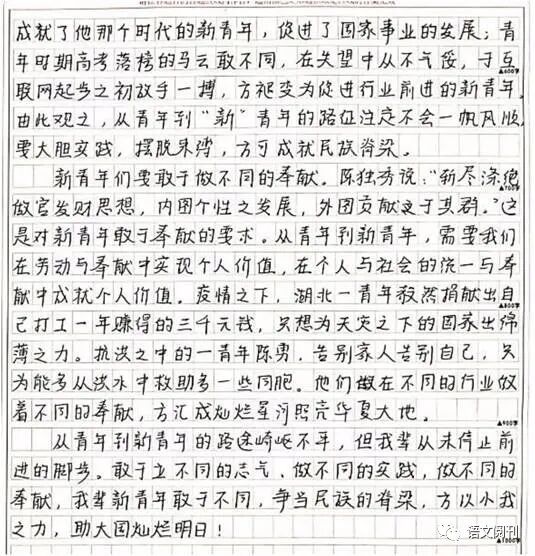 成就了他那个时代的新青年，促进了国家事业的发展；青
年时期高考落榜的马云敢不同，在失望中从不气馁，于互
联网起步之初放手一搏，方蜕变为促进行业前进的新青年。
由此观之，从青年到“新”青年的路征注定不会一帆风顺，
要大胆实践，摆脱束缚，方可成就民族脊梁。
新青年们要敢于做不同的奉献。陈独秀说：“斩尽涤绝
做官发财思想，内图个性之发展，外图贡献之于其群。”这
是对新青年敢于奉献的要求。从青年到新青年，需要我们
在劳动与奉献中实现个人价值，在个人与社会的统一与奉
献中成就个人价值。疫情之下，湖北一青年毅然捐献出自
己打工一年赚得的三千元钱，只想为天灾之下的国家出绵
薄之力。抗洪之中的一青年陈勇，告别家人告别自己，只
为能多从洪水中救助多一些同胞。他们做在不同的行业做
着不同的奉献，方汇成灿烂星河照亮华夏大地。
从青年到新青年的路途崎岖不平，但我辈从未停止前
进的脚步。敢于立不同的志气、做不同的实践，做不同的
奉献，我辈新青年敢于不同，争当民族的脊梁，方以小我
之力，助大国灿烂明日！
▲600字
▲700字
▲800字
▲900字
▲1000字
语文阅刊